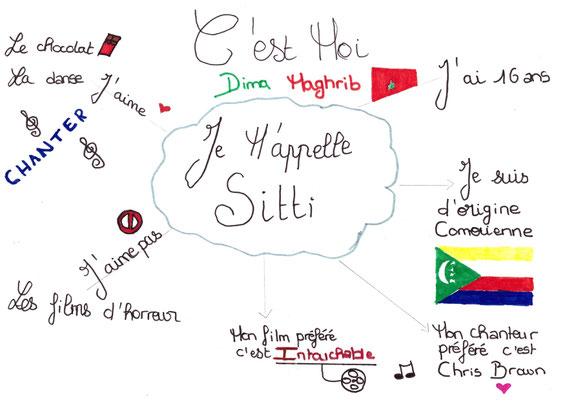 C'est Moi
Dima Maghrib
Le chocolat
La danse
J'aime
CHANTER
J'ai 16 ans
Je M'appelle
Sitti
Je suis
d'origine
Comorienne
J'aime pas
Les films d'horreur
Mon film préféré
c'est Intouchable
Mon chanteur
préféré c'est
Chris Brown